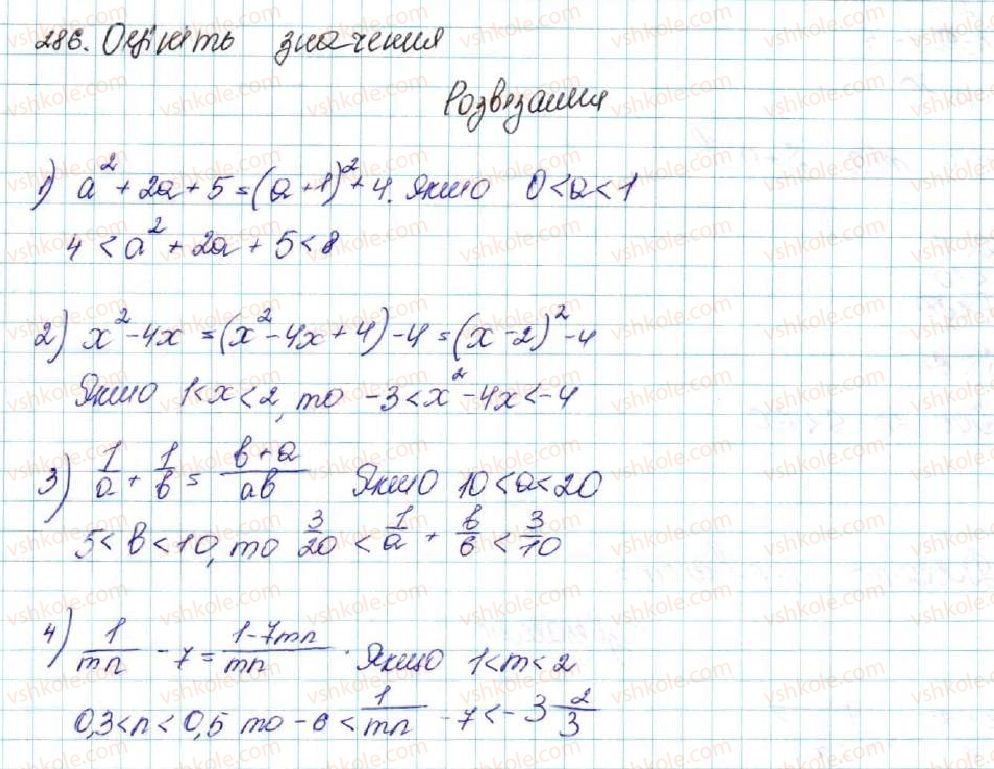 286. Оцініть значення
Розвязання
1) a² + 2a + 5 = (a + 1)² + 4. Якшо 0 < a < 1
4 < a² + 2a + 5 < 8
2) x² - 4x = (x² - 4x + 4) - 4 = (x - 2)² - 4
Якшо 1 < x < 2, то -3 < x² - 4x < -4
3) 1/a + 1/b = b + a/ab Якшо 10 < a < 20
5 < b < 10, то 3/20 < 1/a + b/b < 3/10
4) 1/mn - 7 = 1-7mn/mn . Якщо 1 < m < 2
0,3 < n < 0,5 то -6 < 1/mn - 7 < -3 2/3
vshkole.com